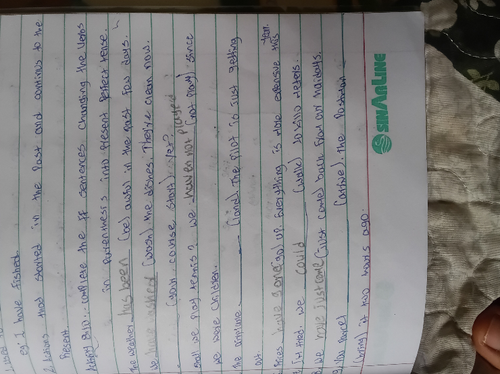 eg. I have finished
2. Actions that started in the Past and continus to the
Present
complete the ff sentences changing the verbs
in parenthesis into present perfect tense.
The weather has been (be) awful in the past few days.
we have (wash) the dishes. They're clean now.
your course start) yet?
shall we play tennis? we haven not played (not play) since
we were children.
The airplane (land). The pilot is just getting
out.
Prices have gone (go) up. Everything is more expensive this
year.
I'm tired. we could (walk) kilo meters.
we have just come (just come) back from our holidays.
(arrive). The
bring it two hours ago.
SINARLINE